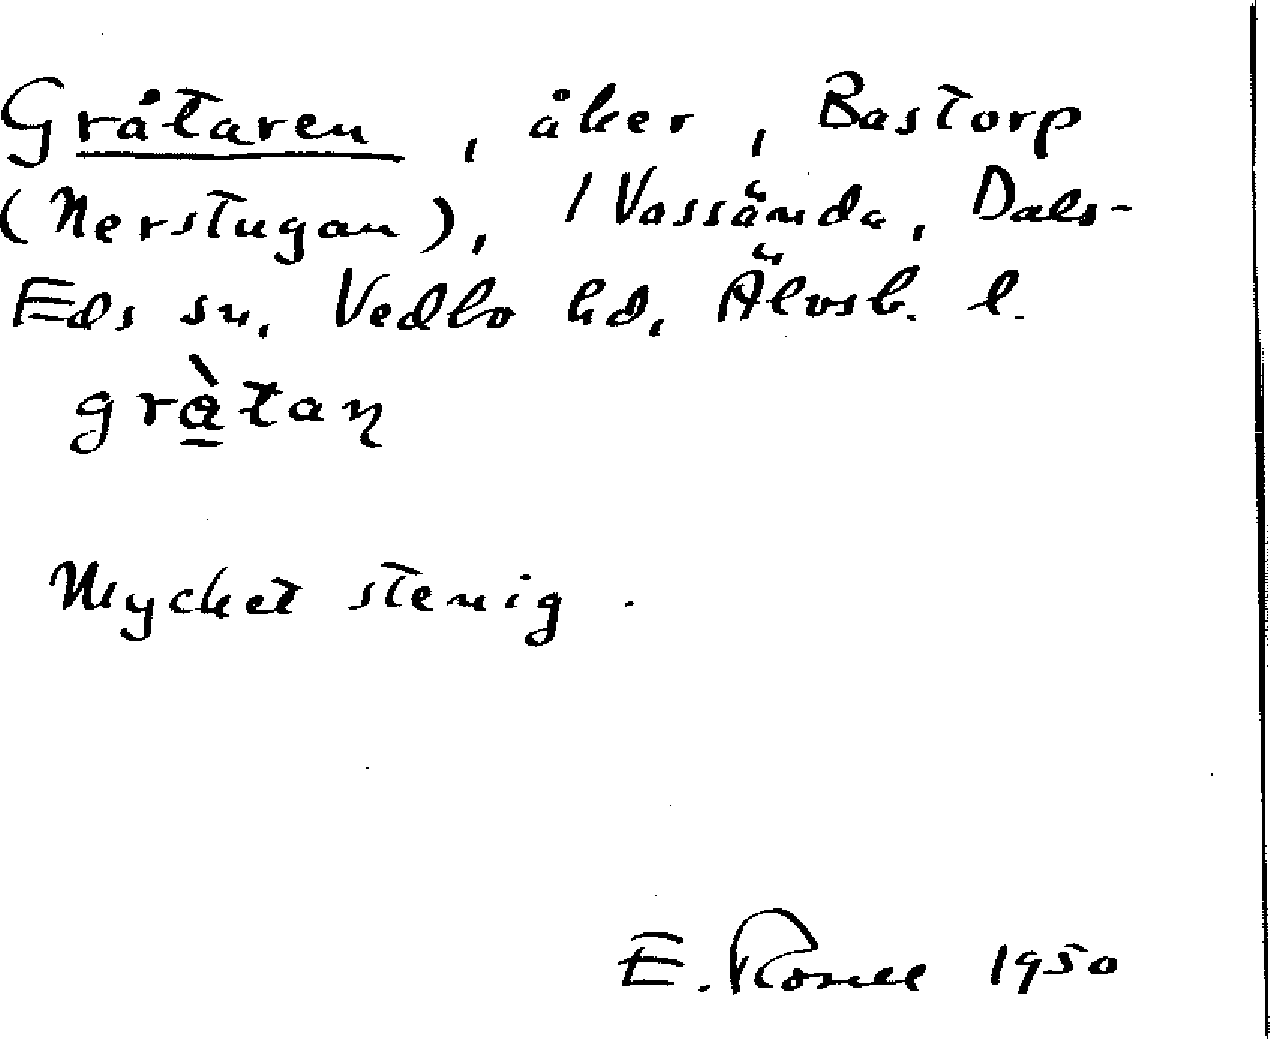 Gråtaren, åker, Bastorp
(Nerstugan), 1 Vassända, Dals-
Eds sn, Vedbo hd, Älvsb. l.
gràtaη
Mycket stenig.
E. Rosell 1950